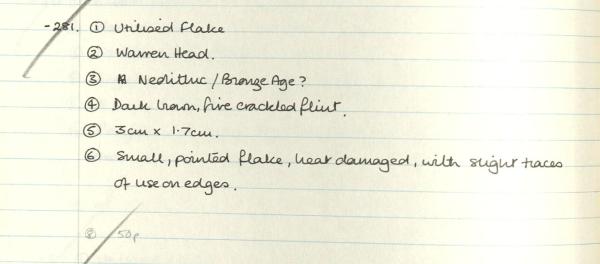 -281. ① Utilised Flake
② Warren Head.
③ Neolithic / Bronze Age?
④ Dark brown, fire crackled flint.
⑤ 3cm x 1.7cm.
⑥ Small, pointed flake, heat damaged, with slight traces
of use on edges.
⑧ 50p